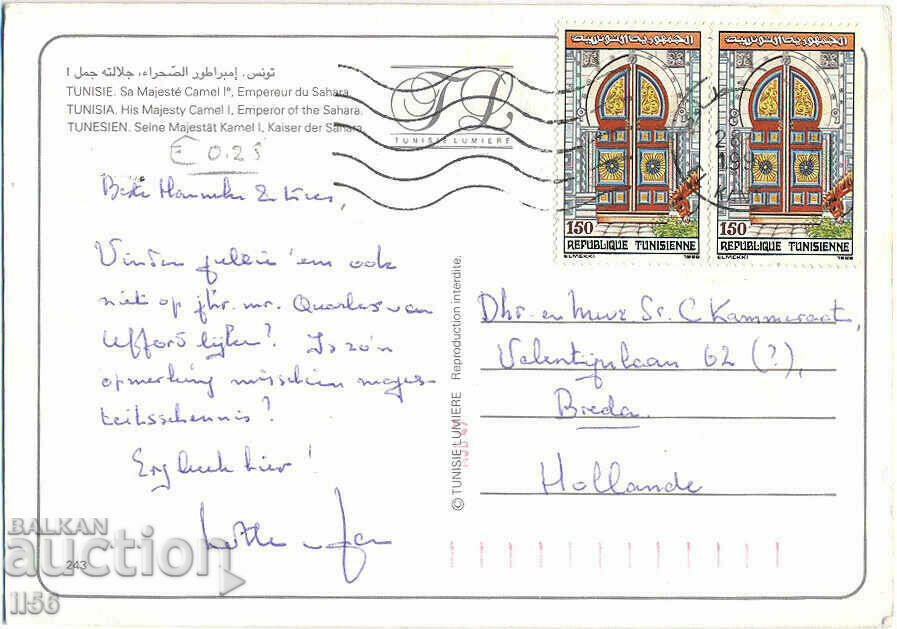 تونس. إمبراطور الصّحراء، جلالته جمل ا
TUNISIE. Sa Majesté Camel Iº, Empereur du Sahara
TUNISIA. His Majesty Camel I, Emperor of the Sahara.
TUNESIEN. Seine Majestät Kamel I, Kaiser der Sahara.
TL
TUNISIE LUMIERE
€ 0.25
الجمهورية التونسية
150
REPUBLIQUE TUNISIENNE
ELMEKKI 1988
الجمهورية التونسية
150
REPUBLIQUE TUNISIENNE
ELMEKKI 1988
Beste Hanneke
Vinden jullie 'em ook
niet op jhr. mr. Quarles van
Ufford lijken? Is zo'n
opmerking misschien majes-
teitsschennis?
Erg leuk hier!
© TUNISIE LUMIERE Reproduction interdite.
Dhr. en Mevr. C Kammeraat,
Valentijnlaan 62 (?),
Breda
Hollande
243
BALKAN
auction
1156